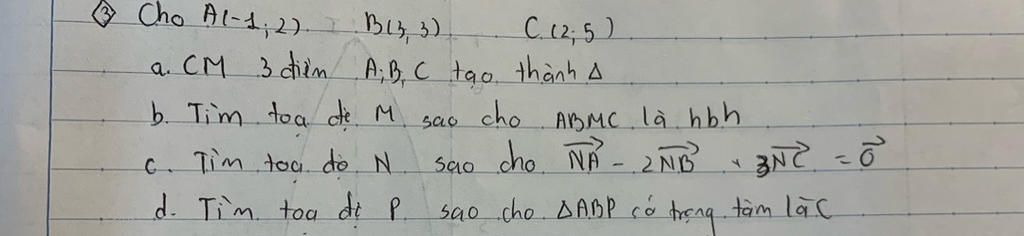 ③ Cho A(-1; 2) B(3, 3) C (2; 5)
a. CM 3 điểm A, B, C tạo thành Δ
b. Tìm toạ độ M sao cho ABMC là hbh
c. Tìm toạ độ N sao cho \overrightarrow{NA} - 2\overrightarrow{NB} + 3\overrightarrow{NC} = \vec{0}
d. Tìm toạ độ P sao cho ΔABP có trọng tâm là C